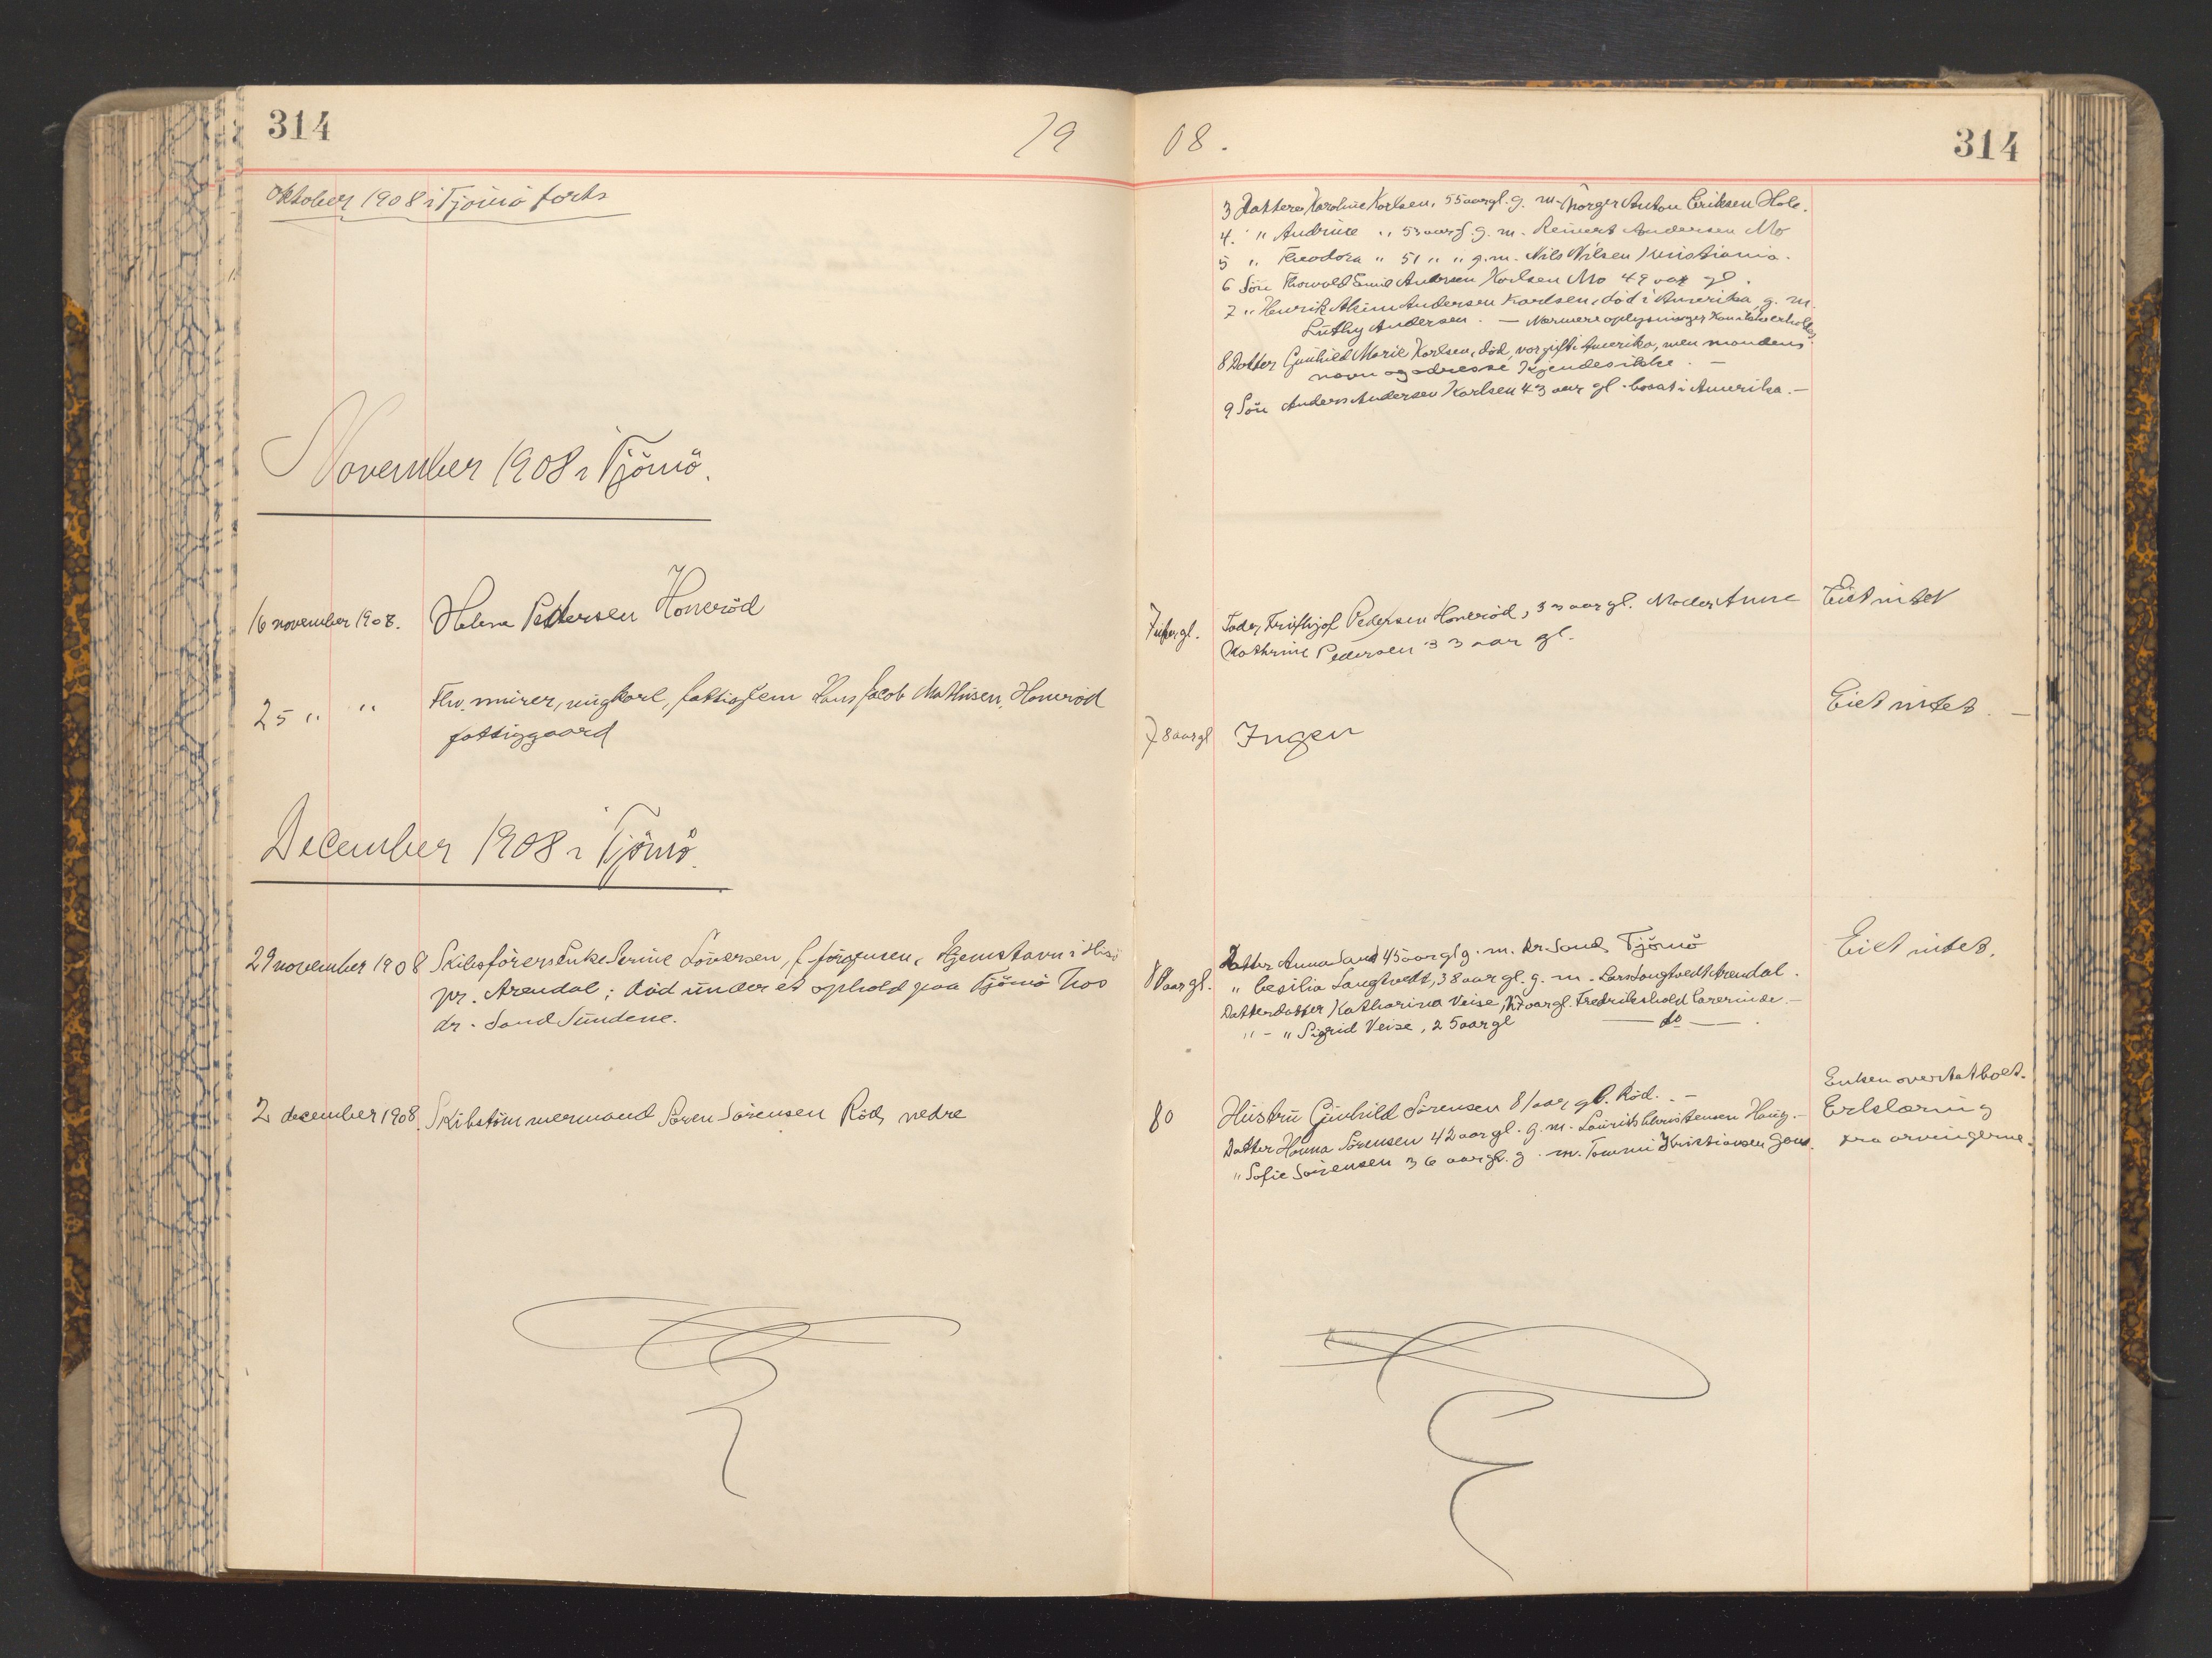 314
19
Oktober 1908 i Tjömö forts
November 1908 i Tjömö.
16 november 1908. Helena Pedersen Honeröd
25 " " Fhv. murer, ungkarl, fattiglem Hans Jacob Mathisen, Honeröd
fattiggaard
December 1908 i Tjömö.
29 november 1908 Skibsförerenke Serine Sörensen, f. Jörgensen, Hjemstavn i Hisö
pr. Arendal; död under et ophold paa Tjömö hos
dr. Sand Sundene.
2 december 1908. Skibstömmermand Sören Sörensen Röd, nedre
08.
314
3 Datter Karoline Karlsen, 55 aar gl. g. m. Anton Eriksen Hole.
4. " Andrine " 53 aar g. g. m. Reinert Andersen Mo
5 " Theodora " 51 " " g. m. Nils Nilsen Kristiania.
6 Sön Thorvald Emil Andersen Karlsen Mo 49 aar gl.
7 " Henrik Andersen Karlsen, död i Amerika, g. m.
Andersen. — Nærmere oplysninger kan ikke erholdes
8 Datter Gunhild Marie Karlsen, död, var gift i Amerika, men mandens
navn og adresse kjendes ikke. —
9 Sön Anders Andersen Karlsen 43 aar gl. bosat i Amerika. —
7 gl. Fader Frithjof Pedersen Honeröd, 33 aar gl. Moder Anne Eiet intet
Kathrine Pedersen 33 aar gl.
78 aar gl Ingen Eiet intet. —
aar gl. Datter Anna Sand 45 aar gl g. m. dr. Sand, Tjömö Eiet intet.
" Cesilia Langtvedt, 38 aar gl. g. m. Lars Langtvedt Arendal.
Datterdatter Katharina Veise, 27 aar gl. Fredrikshald Lærerinde. —
" - " Sigrid Veise, 25 aar gl — do — .
80 Hustru Gunhild Sörensen 81 aar gl. Röd. . — Enken overtat boet.
Datter Hanna Sörensen 42 aar gl. g. m. Laurits Christensen Haug. — Erklæring
" Sofie Sörensen 36 aar gl. g. m. Kristiansen fra arvingerne.